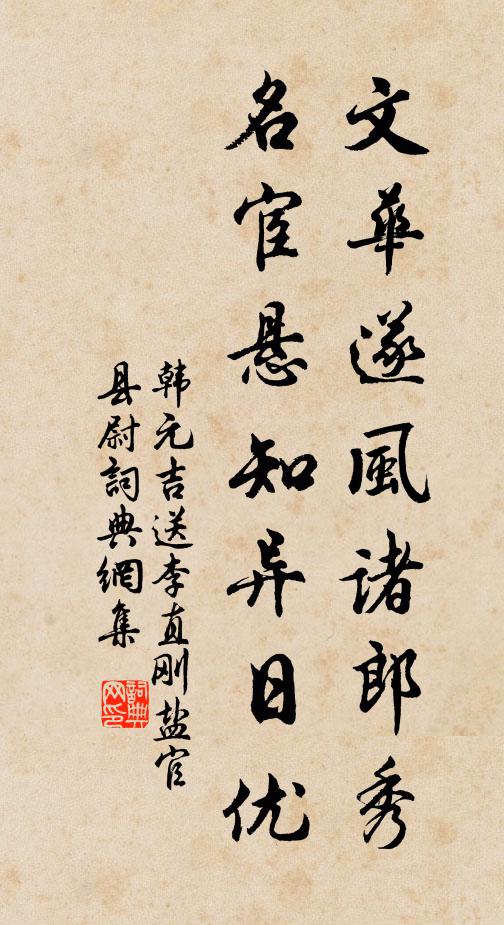 文華遂風諸郎秀
名宦悬知异日优
韩元吉送李直刚盐官
县尉詞典網集
詞典
网印